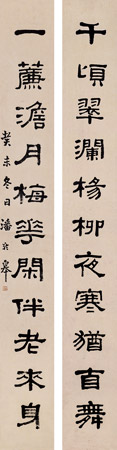 千頃翠瀾楊柳夜寒猶自舞
一簾澹月梅花閑伴老來身
癸未冬日潘於皋